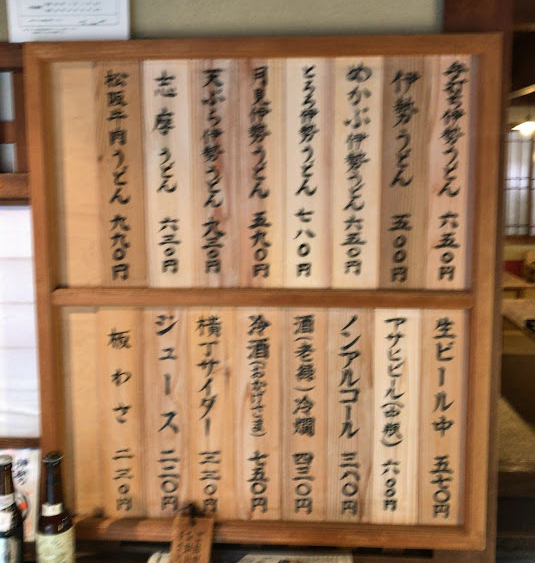 手打ち伊勢うどん 六五〇円
伊勢うどん 五〇〇円
めかぶ伊勢うどん 六五〇円
とろろ伊勢うどん 七八〇円
月見伊勢うどん 五九〇円
天ぷら伊勢うどん 九三〇円
志摩うどん 六三〇円
松阪牛肉うどん 九九〇円
生ビール中 五七〇円
アサヒビール(中瓶) 六〇〇円
ノンアルコール 三八〇円
酒(老緑)冷燗 四三〇円
冷酒(おかげさま) 七五〇円
横丁サイダー 三三〇円
ジュース 二二〇円
板わさ 二三〇円